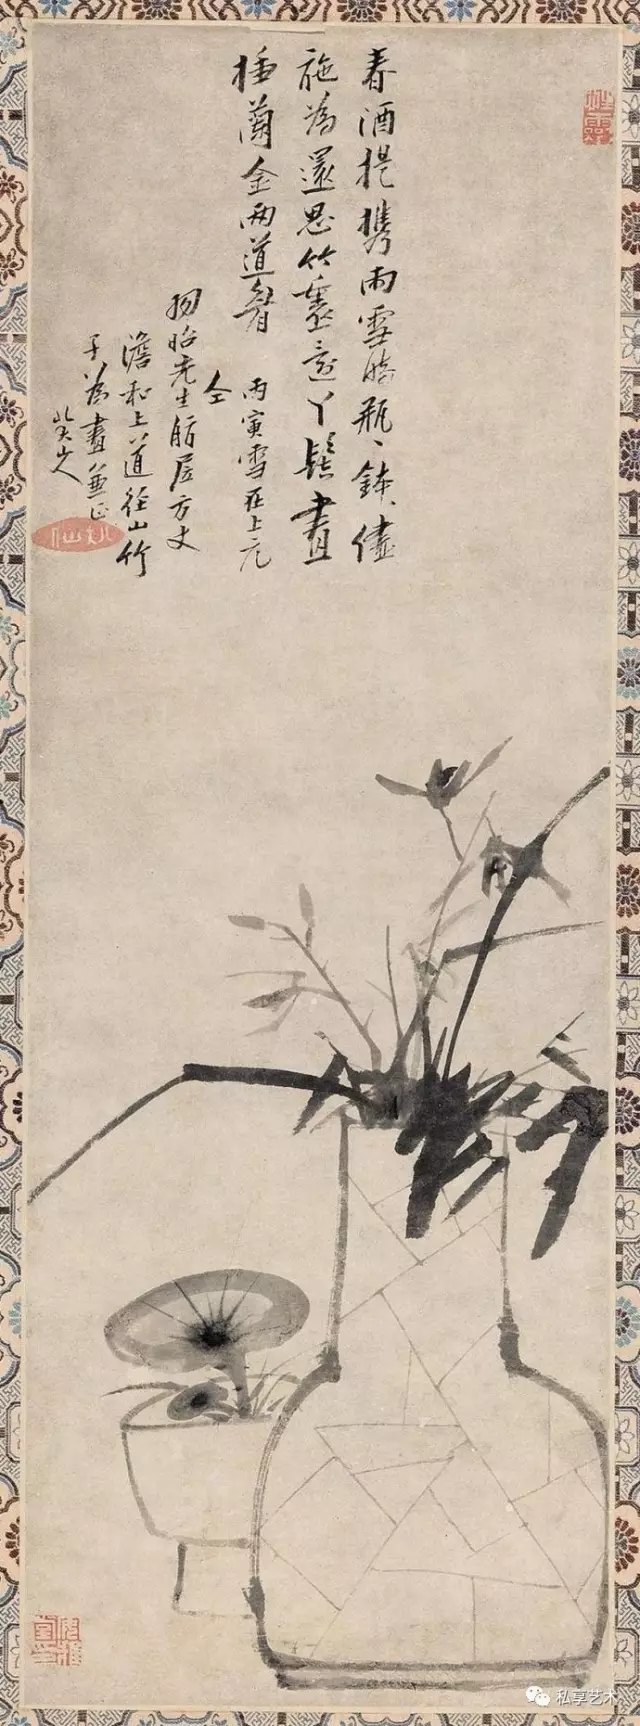 春酒提携雨雪時瓶、鉢、儘
施為還思竹裏㝎丫髻畫
插蘭金兩道眉 丙寅雪在上元
仝
昭先生膀居方丈
澹和上道徑山竹
子為畫並正
八大山人
私享艺术